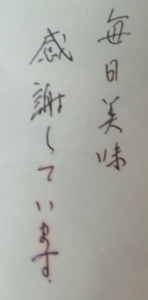 毎日美味
感謝しています